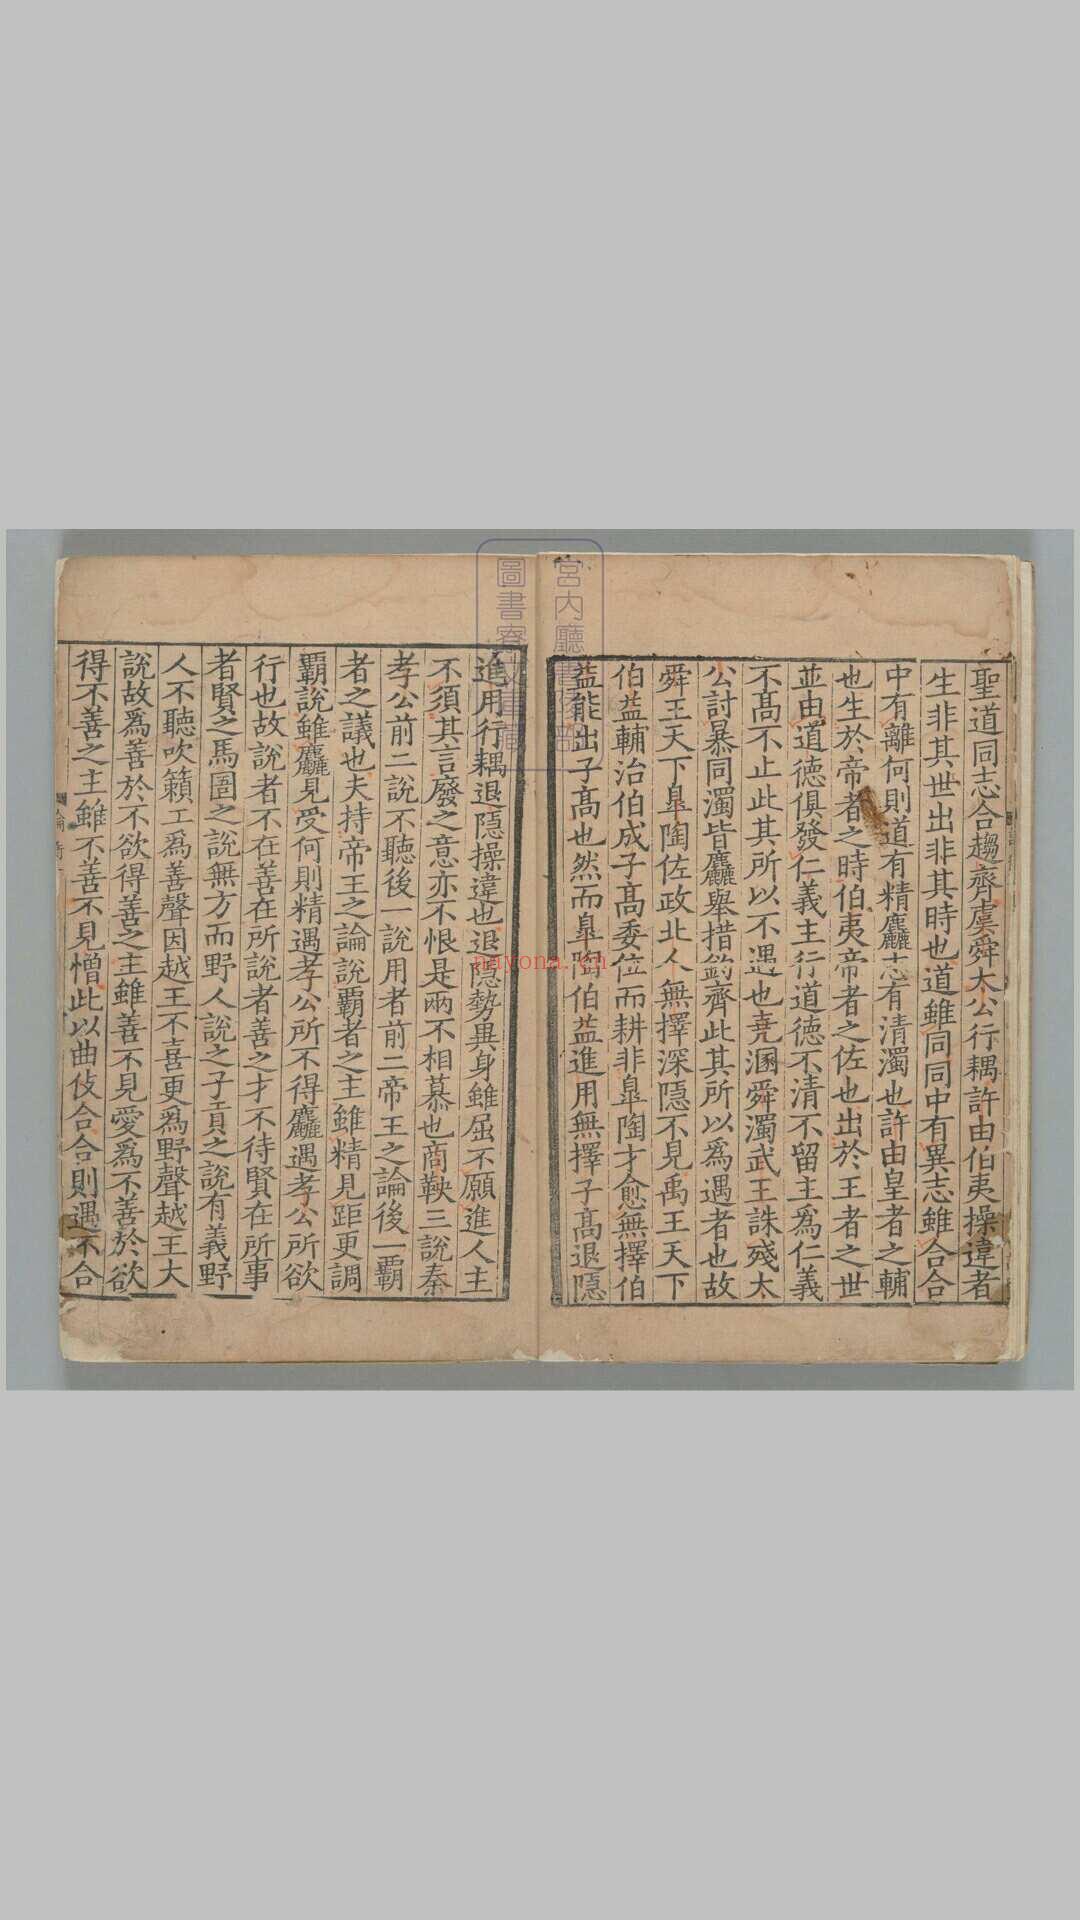 聖道同志合趨齊虞舜太公行耦許由伯夷操違者
生非其世出非其時也道雖同同中有異志雖合合
中有離何則道有精麤志有清濁也許由皇者之輔
也生於帝者之時伯夷帝者之佐也出於王者之世
並由道德俱發仁義主行道德不清不留主爲仁義
不髙不止此其所以不遇也堯溷舜濁武王誅殘太
公討暴同濁皆麤舉措鈞齊此其所以爲遇者也故
舜王天下臯陶佐政北人無擇深隱不見禹王天下
伯益輔治伯成子髙委位而耕非臯陶才愈無擇伯
益能出子髙也然而臯陶伯益進用無擇子髙退隱
進用行耦退隱操違也退隱勢異身雖屈不願進人主
不須其言廢之意亦不恨是兩不相慕也商鞅三說秦
孝公前二說不聽後一說用者前二帝王之論後一霸
者之議也夫持帝王之論說霸者之主雖精見距更調
霸說雖麤見受何則精遇孝公所不得麤遇孝公所欲
行也故說者不在善在所說者善之才不待賢在所事
者賢之馬圄之說無方而野人說之子貢之說有義野
人不聽吹籟工爲善聲因越王不喜更爲野聲越王大
說故爲善於不欲得善之主雖善不見愛爲不善於欲
得不善之主雖不善不見憎此以曲伎合合則遇不合
宮內廳書陵部
圖書寮文庫
nayona.cn